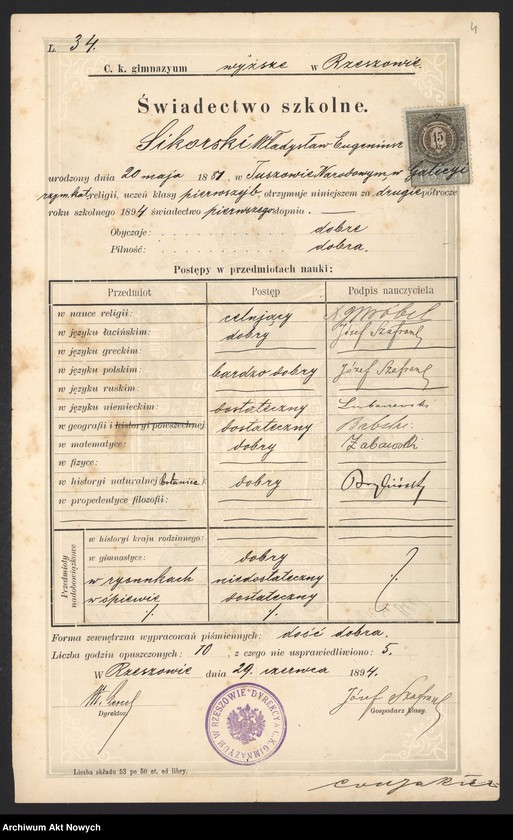 4
L. 34.
C. k. gimnazyum wyższe w Rzeszowie.
Świadectwo szkolne.
Sikorski Władysław Eugeniusz
15
urodzony dnia 20 maja 1881, w Tuszowie Narodowym, w Galicyi
rzym. kat. religii, uczeń klasy pierwszej b, otrzymuje niniejszem za drugie półrocze
roku szkolnego 1894 świadectwo pierwszego stopnia.
Obyczaje: dobre
Pilność: dobra.
Postępy w przedmiotach nauki:
Przedmiot Postęp Podpis nauczyciela
w nauce religii: celujący X. Wróbel
w języku łacińskim: dobry Józef Szafran
w języku greckim:
w języku polskim: bardzo dobry Józef Szafran
w języku ruskim:
w języku niemieckim: dostateczny
w geografii i historyi powszechnej: dostateczny
w matematyce: dobry Zabawski
w fizyce:
w historyi naturalnej (botanice): dobry
w propedeutyce filozofii:
Przedmioty nadobowiązkowe
w historyi kraju rodzinnego:
w gimnastyce: dobry
w rysunkach niedostateczny
w śpiewie dostateczny
Forma zewnętrzna wypracowań piśmiennych: dość dobra.
Liczba godzin opuszczonych: 10, z czego nie usprawiedliwiono: 5.
W Rzeszowie dnia 29 czerwca 1894.
Józef Szafran
Dyrektor.
Gospodarz klasy.
DYREKCYA C. K. GIMNAZYUM W RZESZOWIE
Liczba składu 53 po 50 ct. od libry.
Archiwum Akt Nowych